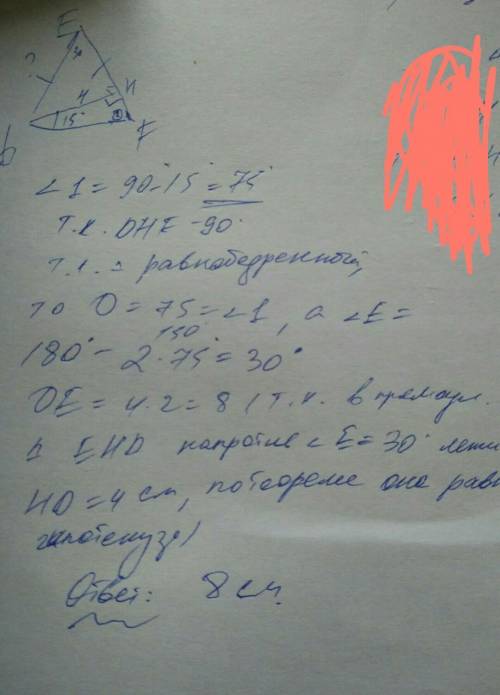 E
?
4 H
15° 1 F
D
∠1 = 90° - 15° = 75°
т.к. DHE - 90°
т.к. △ равнобедренный,
то D = 75 = ∠1, а ∠E =
150°
180° - 2·75° = 30°
DE = 4·2 = 8 (т.к. в прямоуг.
△ EHD напротив ∠E = 30° лежи
HD = 4 см, по теореме она равн
гипотенузе)
Ответ: 8 см.